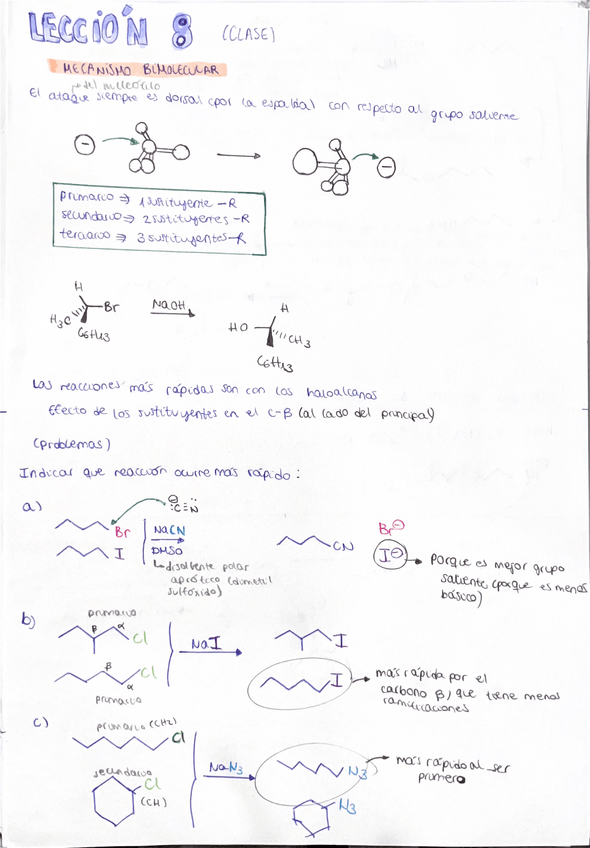 LECCIÓN 8 (CLASE)
MECANISMO BIMOLECULAR
del nucleófilo
El ataque siempre es dorsal (por la espalda) con respecto al grupo saliente
primario ⇒ 1 sustituyente -R
secundario ⇒ 2 sustituyentes -R
terciario ⇒ 3 sustituyentes -R
H
Br
H3C
C6H13
NaOH
H
HO
CH3
C6H13
Las reacciones más rápidas son con los haloalcanos
Efecto de los sustituyentes en el C-β (al lado del principal)
(problemas)
Indicar que reacción ocurre mas rápido:
a)
:C≡N:
Br
I
NaCN
DMSO
disolvente polar
aprótico (dimetil
sulfóxido)
CN
Br⊖
I⊖
Porque es mejor grupo
saliente (porque es menos
básico)
b)
primario
β α Cl
β Cl
α
primario
NaI
I
I
más rápida por el
carbono β, que tiene menos
ramificaciones
c)
primario (CH2)
Cl
secundario
Cl
(CH)
NaN3
N3
más rápido al ser
primero
N3